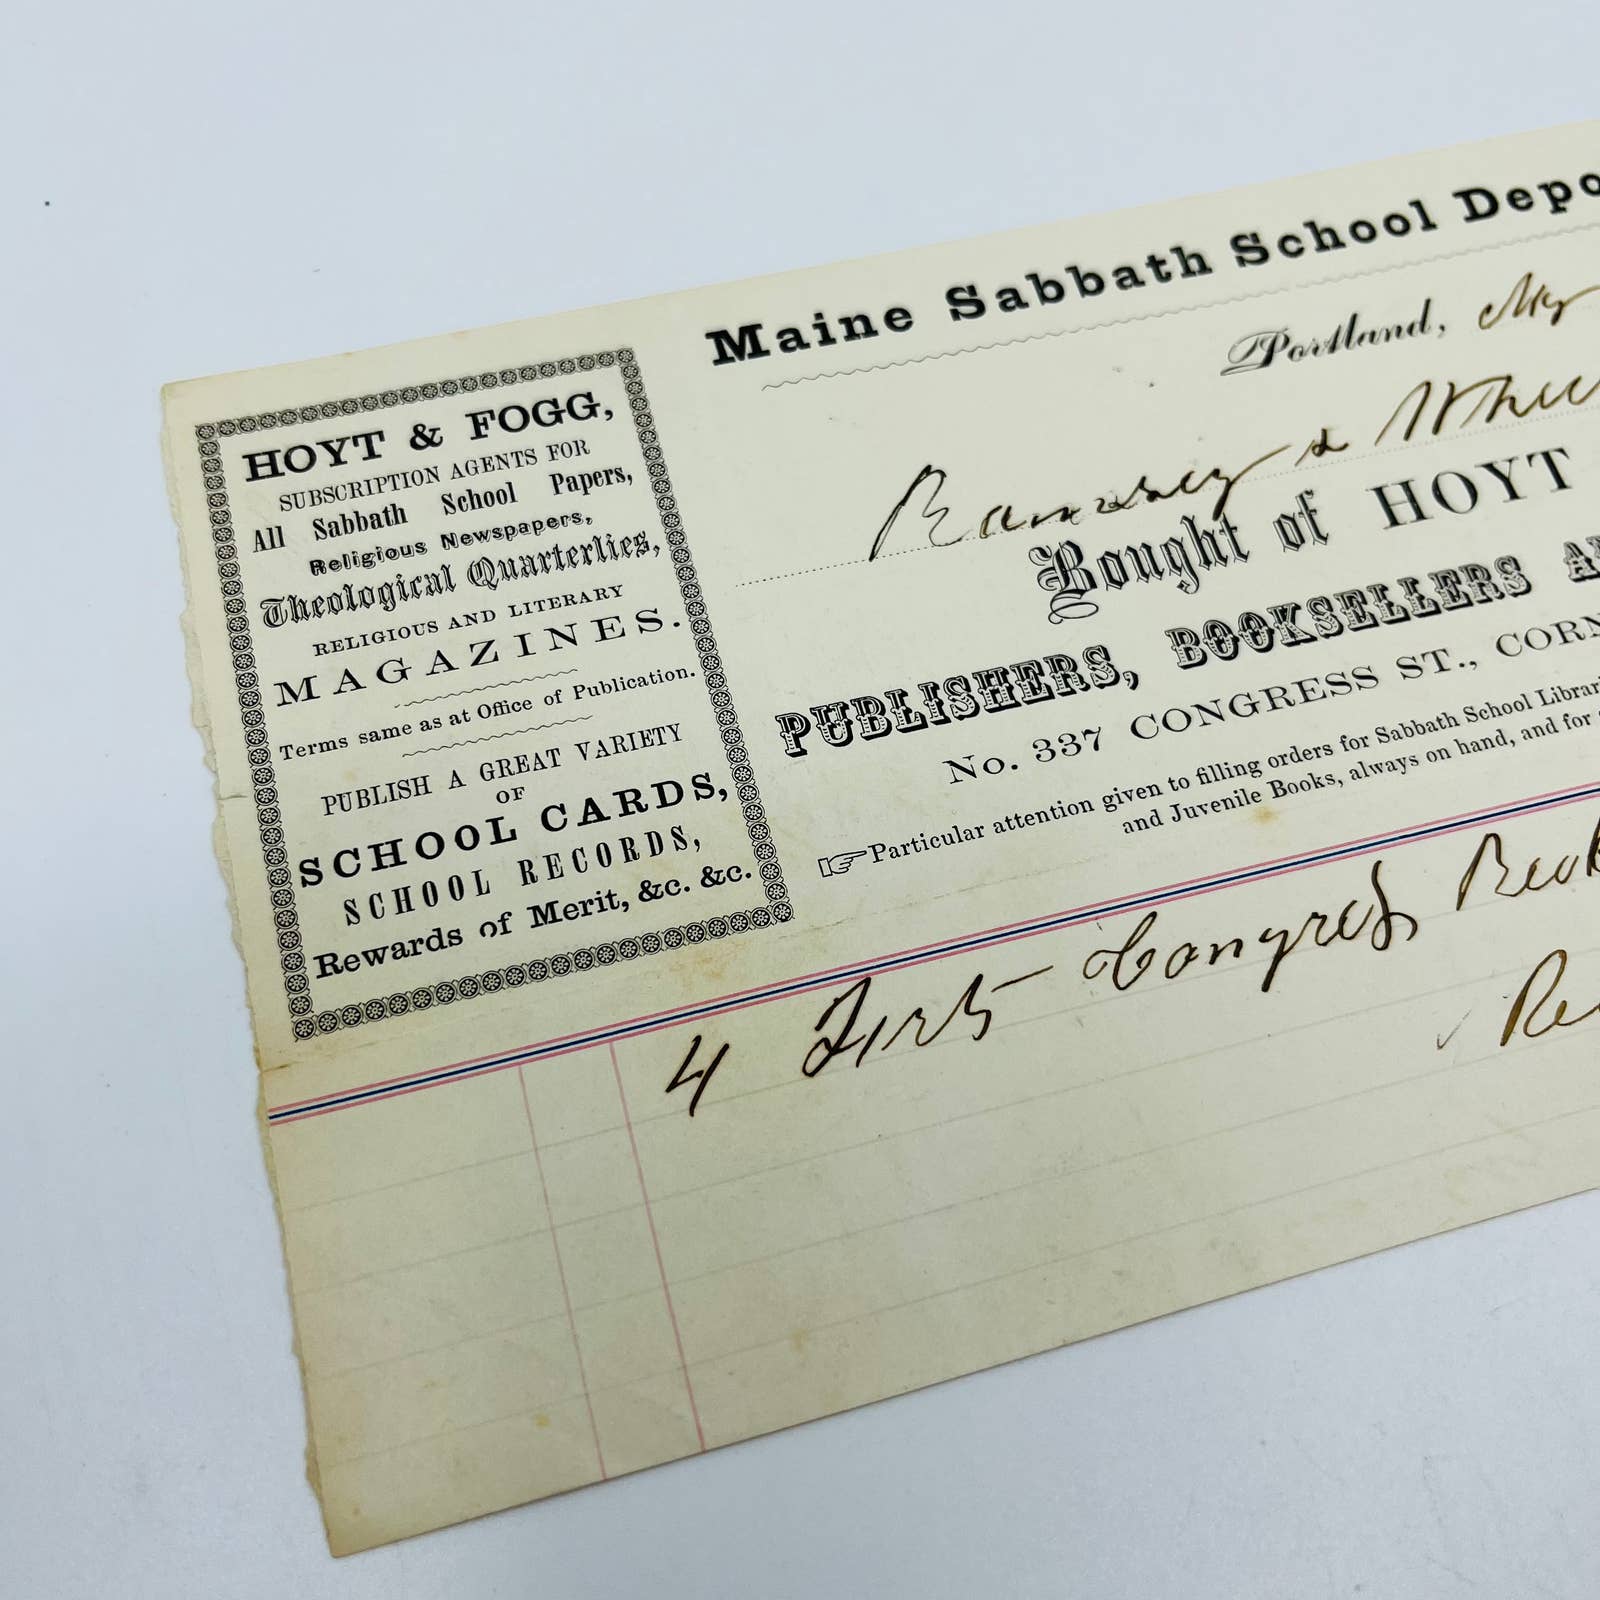 HOYT & FOGG,
SUBSCRIPTION AGENTS FOR
All Sabbath School Papers,
Religious Newspapers,
Theological Quarterlies,
RELIGIOUS AND LITERARY
MAGAZINES.
Terms same as at Office of Publication.
PUBLISH A GREAT VARIETY
OF
SCHOOL CARDS,
SCHOOL RECORDS,
Rewards of Merit, &c. &c.
Maine Sabbath School Depo
Portland,
Ramsey & Whee
Bought of HOYT
PUBLISHERS, BOOKSELLERS A
No. 337 CONGRESS ST., CORN
☞Particular attention given to filling orders for Sabbath School Librar
and Juvenile Books, always on hand, and for
4 First Congress